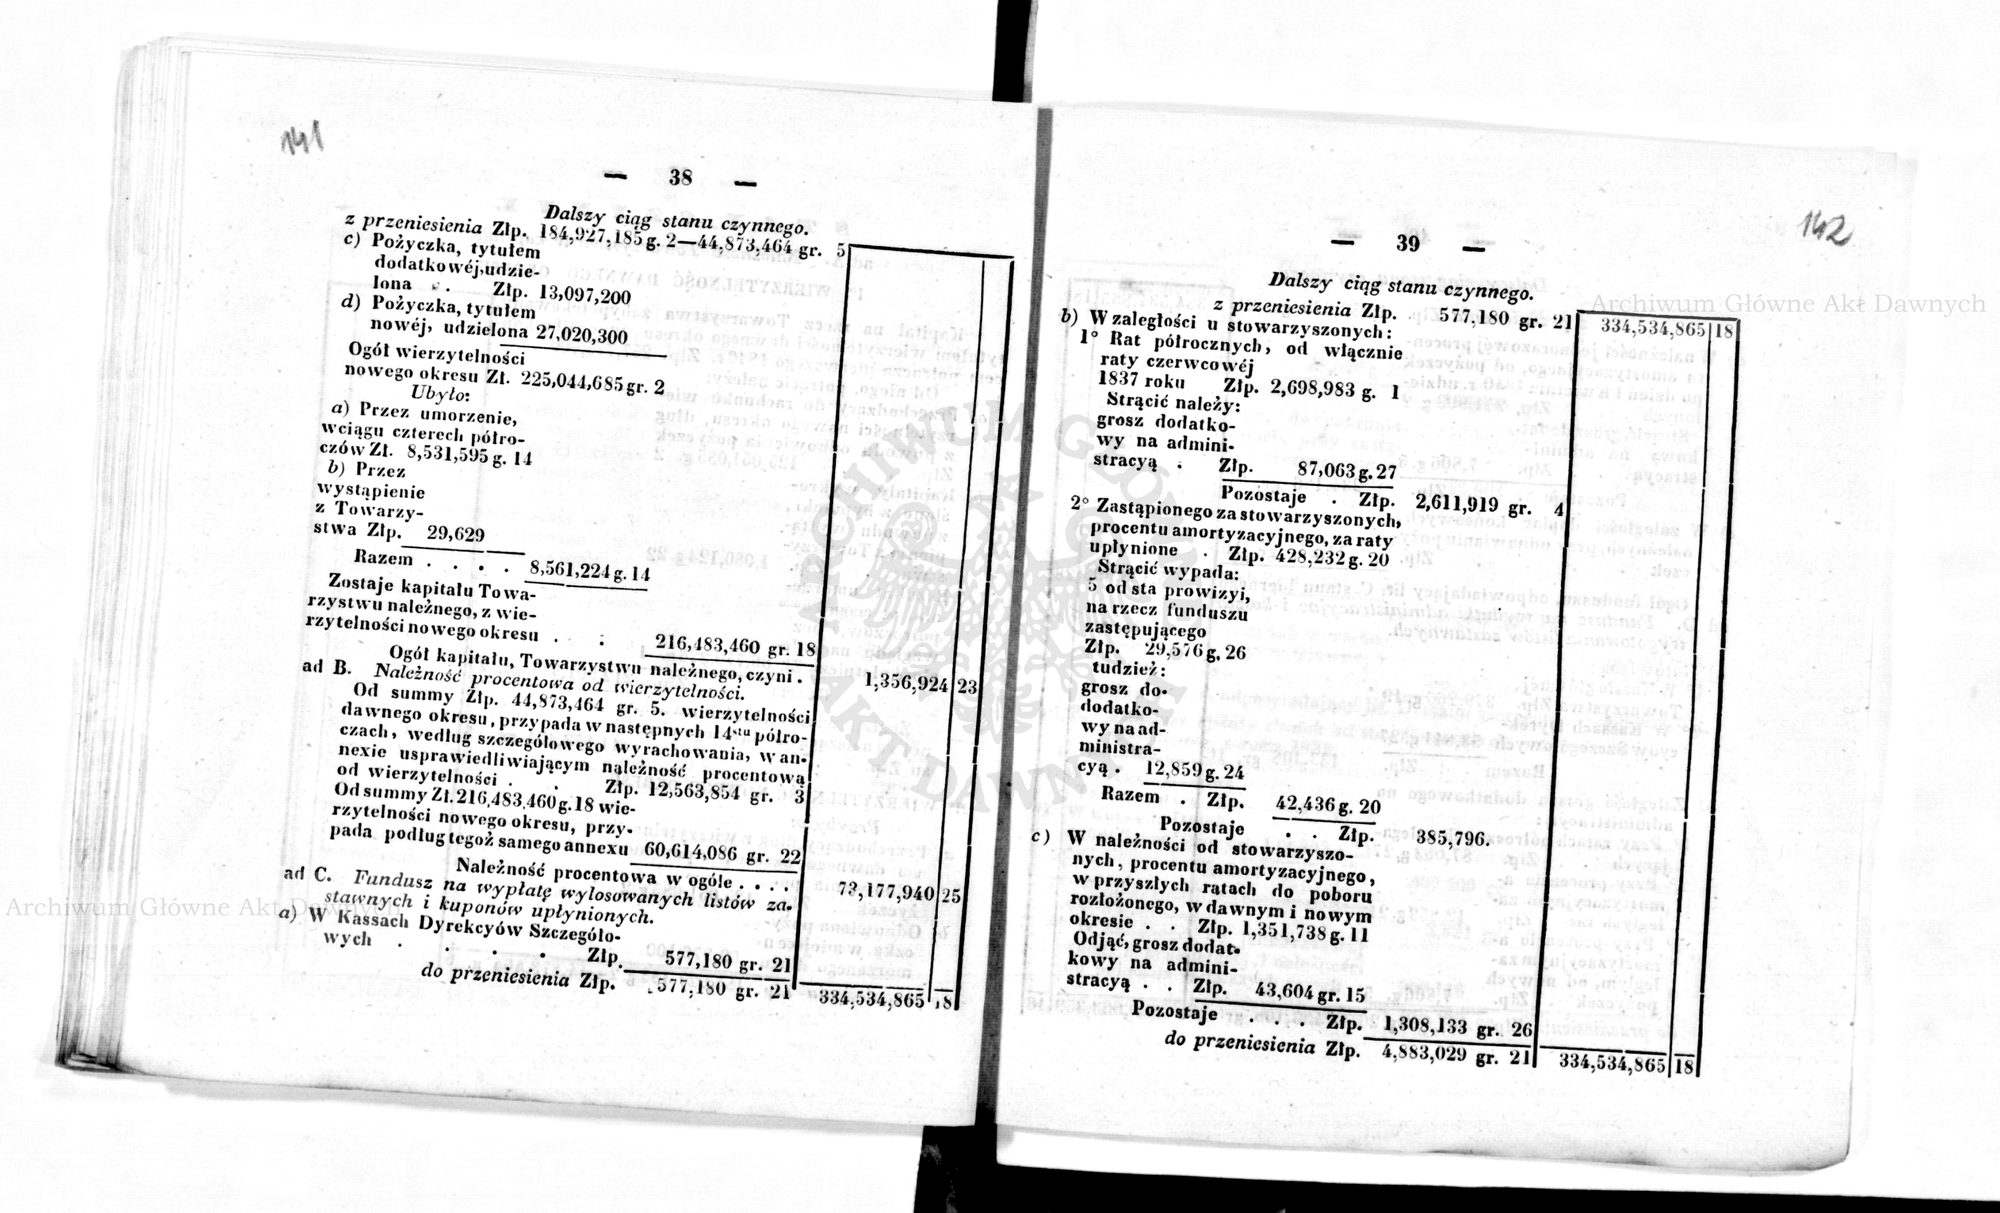 141
— 38 —
Dalszy ciąg stanu czynnego.
z przeniesienia Złp. 184,927,185 g. 2—44,873,464 gr. 5
c) Pożyczka, tytułem
dodatkowéj, udzie-
lona . . Złp. 13,097,200
d) Pożyczka, tytułem
nowéj, udzielona 27,020,300
Ogół wierzytelności
nowego okresu Zł. 225,044,685 gr. 2
Ubyło:
a) Przez umorzenie,
wciągu czterech półro-
czów Zł. 8,531,595 g. 14
b) Przez
wystąpienie
z Towarzy-
stwa Złp. 29,629
Razem . . . . 8,561,224 g. 14
Zostaje kapitału Towa-
rzystwu należnego, z wie-
rzytelności nowego okresu . . 216,483,460 gr. 18
Ogół kapitału, Towarzystwu należnego, czyni . 1,356,924 23
ad B. Należność procentowa od wierzytelności.
Od summy Złp. 44,873,464 gr. 5. wierzytelności
dawnego okresu, przypada w następnych 14stu półro-
czach, według szczegółowego wyrachowania, w an-
nexie usprawiedliwiającym należność procentową
od wierzytelności . . Złp. 12,563,854 gr. 3
Od summy Zł. 216,483,460 g. 18 wie-
rzytelności nowego okresu, przy-
pada podług tegoż samego annexu 60,614,086 gr. 22
Należność procentowa w ogóle . . . . 73,177,940 25
ad C. Fundusz na wypłatę wylosowanych listów za-
stawnych i kuponów upłynionych.
a) W Kassach Dyrekcyów Szczegóło-
wych . . . . Złp. 577,180 gr. 21
do przeniesienia Złp. 577,180 gr. 21 334,534,865 18
142
— 39 —
Dalszy ciąg stanu czynnego.
z przeniesienia Złp. 577,180 gr. 21 334,534,865 18
b) W zaległości u stowarzyszonych:
1° Rat półrocznych, od włącznie
raty czerwcowéj
1837 roku Złp. 2,698,983 g. 1
Strącić należy:
grosz dodatko-
wy na admini-
stracyą . Złp. 87,063 g. 27
Pozostaje . Złp. 2,611,919 gr. 4
2° Zastąpionego za stowarzyszonych,
procentu amortyzacyjnego, za raty
upłynione . Złp. 428,232 g. 20
Strącić wypada:
5 od sta prowizyi,
na rzecz funduszu
zastępującego
Złp. 29,576 g. 26
tudzież:
grosz do-
dodatko-
wy na ad-
ministra-
cyą . 12,859 g. 24
Razem . Złp. 42,436 g. 20
Pozostaje . . Złp. 385,796.
c) W należności od stowarzyszo-
nych, procentu amortyzacyjnego,
w przyszłych ratach do poboru
rozłożonego, w dawnym i nowym
okresie . . Złp. 1,351,738 g. 11
Odjąć, grosz dodat-
kowy na admini-
stracyą . . Złp. 43,604 gr. 15
Pozostaje . . . Złp. 1,308,133 gr. 26
do przeniesienia Złp. 4,883,029 gr. 21 334,534,865 18
Archiwum Główne Akt Dawnych
Archiwum Główne Akt Dawnych
ARCHIWUM GŁÓWNE AKT DAWNYCH